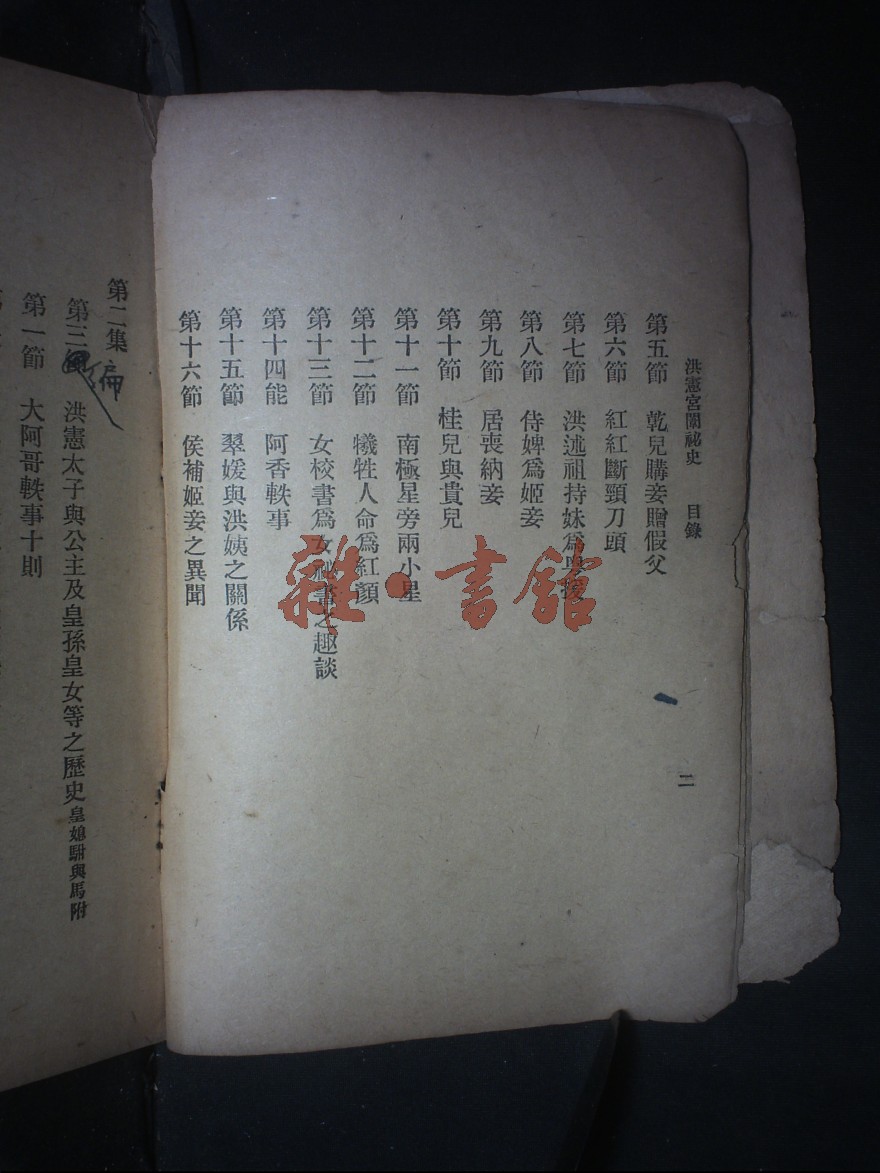 洪憲宮闈祕史 目錄 二
第五節 乾兒購妾贈假父
第六節 紅紅斷頸刀頭
第七節 洪述祖持妹爲奧援
第八節 侍婢爲姬妾
第九節 居喪納妾
第十節 桂兒與貴兒
第十一節 南極星旁兩小星
第十二節 犧牲人命爲紅顏
第十三節 女校書爲女祕書之趣談
第十四能 阿香軼事
第十五節 翠媛與洪姨之關係
第十六節 侯補姬妾之異聞
第二集
第三編 洪憲太子與公主及皇孫皇女等之歷史 皇娘駙與馬附
第一節 大阿哥軼事十則
雜·書館